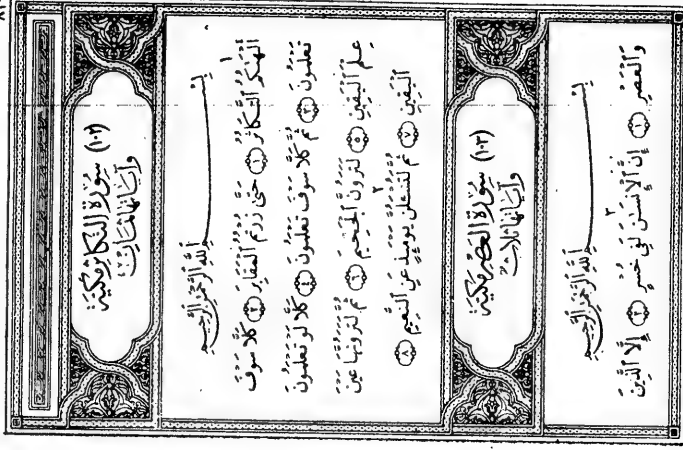 (١٠٢) سُورَةُ التَّكَاثُرِ مَكِّيَّة
وَآيَاتُهَا ثَمَانٍ
بِسْمِ ٱللَّهِ ٱلرَّحْمَٰنِ ٱلرَّحِيمِ
أَلْهَىٰكُمُ ٱلتَّكَاثُرُ ﴿١﴾ حَتَّىٰ زُرْتُمُ ٱلْمَقَابِرَ ﴿٢﴾ كَلَّا سَوْفَ
تَعْلَمُونَ ﴿٣﴾ ثُمَّ كَلَّا سَوْفَ تَعْلَمُونَ ﴿٤﴾ كَلَّا لَوْ تَعْلَمُونَ
عِلْمَ ٱلْيَقِينِ ﴿٥﴾ لَتَرَوُنَّ ٱلْجَحِيمَ ﴿٦﴾ ثُمَّ لَتَرَوُنَّهَا عَيْنَ
ٱلْيَقِينِ ﴿٧﴾ ثُمَّ لَتُسْـَٔلُنَّ يَوْمَئِذٍ عَنِ ٱلنَّعِيمِ ﴿٨﴾
(١٠٣) سُورَةُ العَصْرِ مَكِّيَّة
وَآيَاتُهَا ثَلَاثٌ
بِسْمِ ٱللَّهِ ٱلرَّحْمَٰنِ ٱلرَّحِيمِ
وَٱلْعَصْرِ ﴿١﴾ إِنَّ ٱلْإِنسَٰنَ لَفِى خُسْرٍ ﴿٢﴾ إِلَّا ٱلَّذِينَ